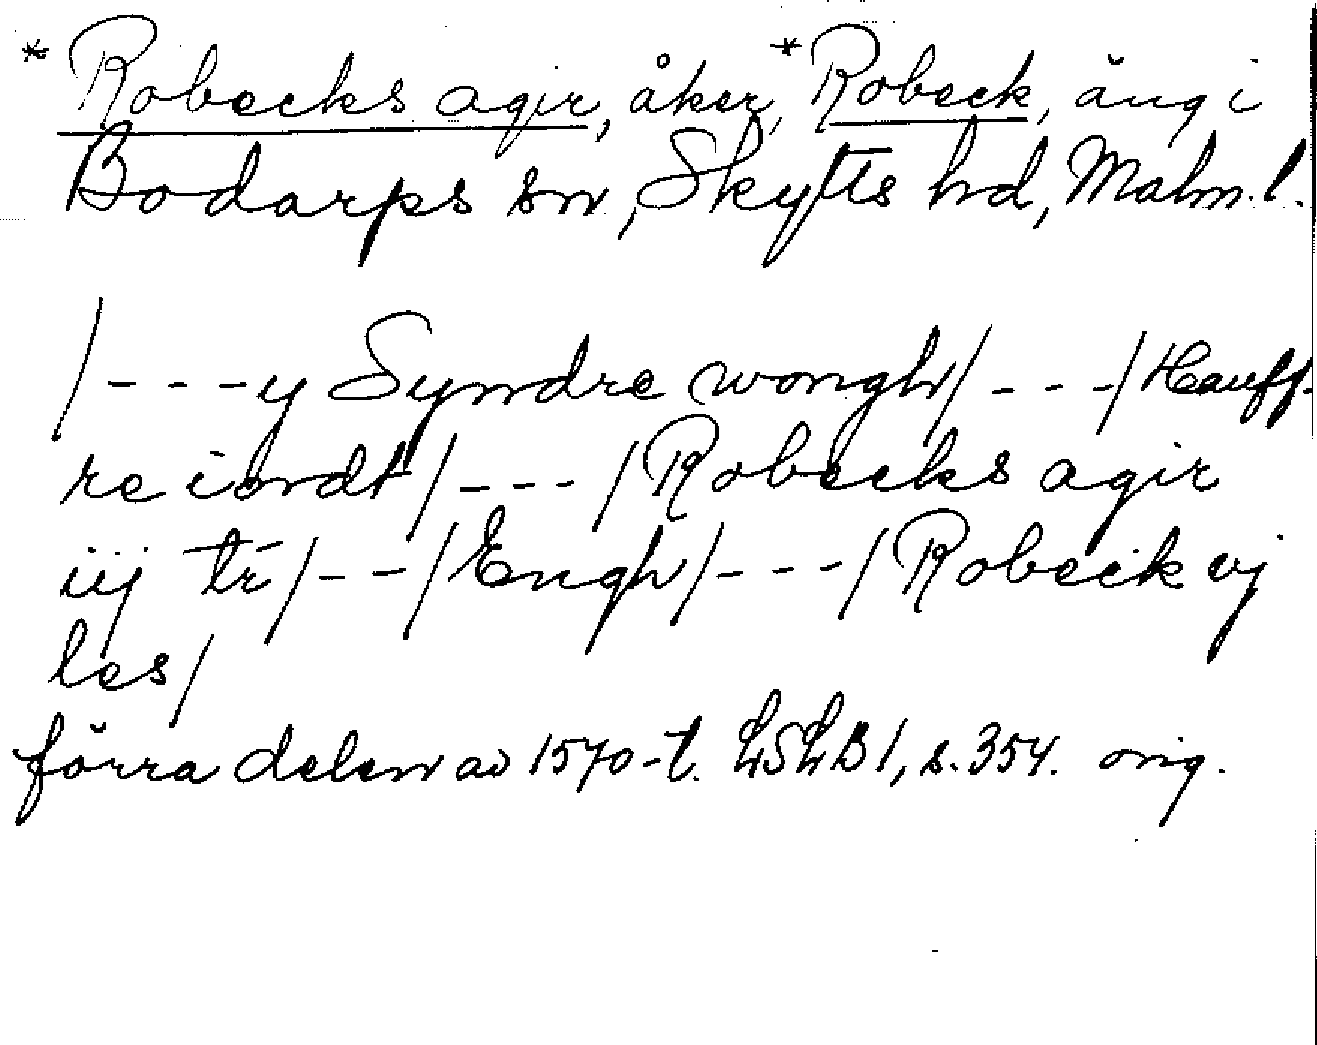 * Robecks agir, åker, * Robeck, äng i
Bodarps sn, Skytts hd, Malm. l.
/---y Syndre wongh/---/Hauff-
re iordt/---/Robecks agir
iij tr/--/Engh/---/Robeck vj
les/
förra delen av 1570-t. LSLB 1, s. 354. orig.